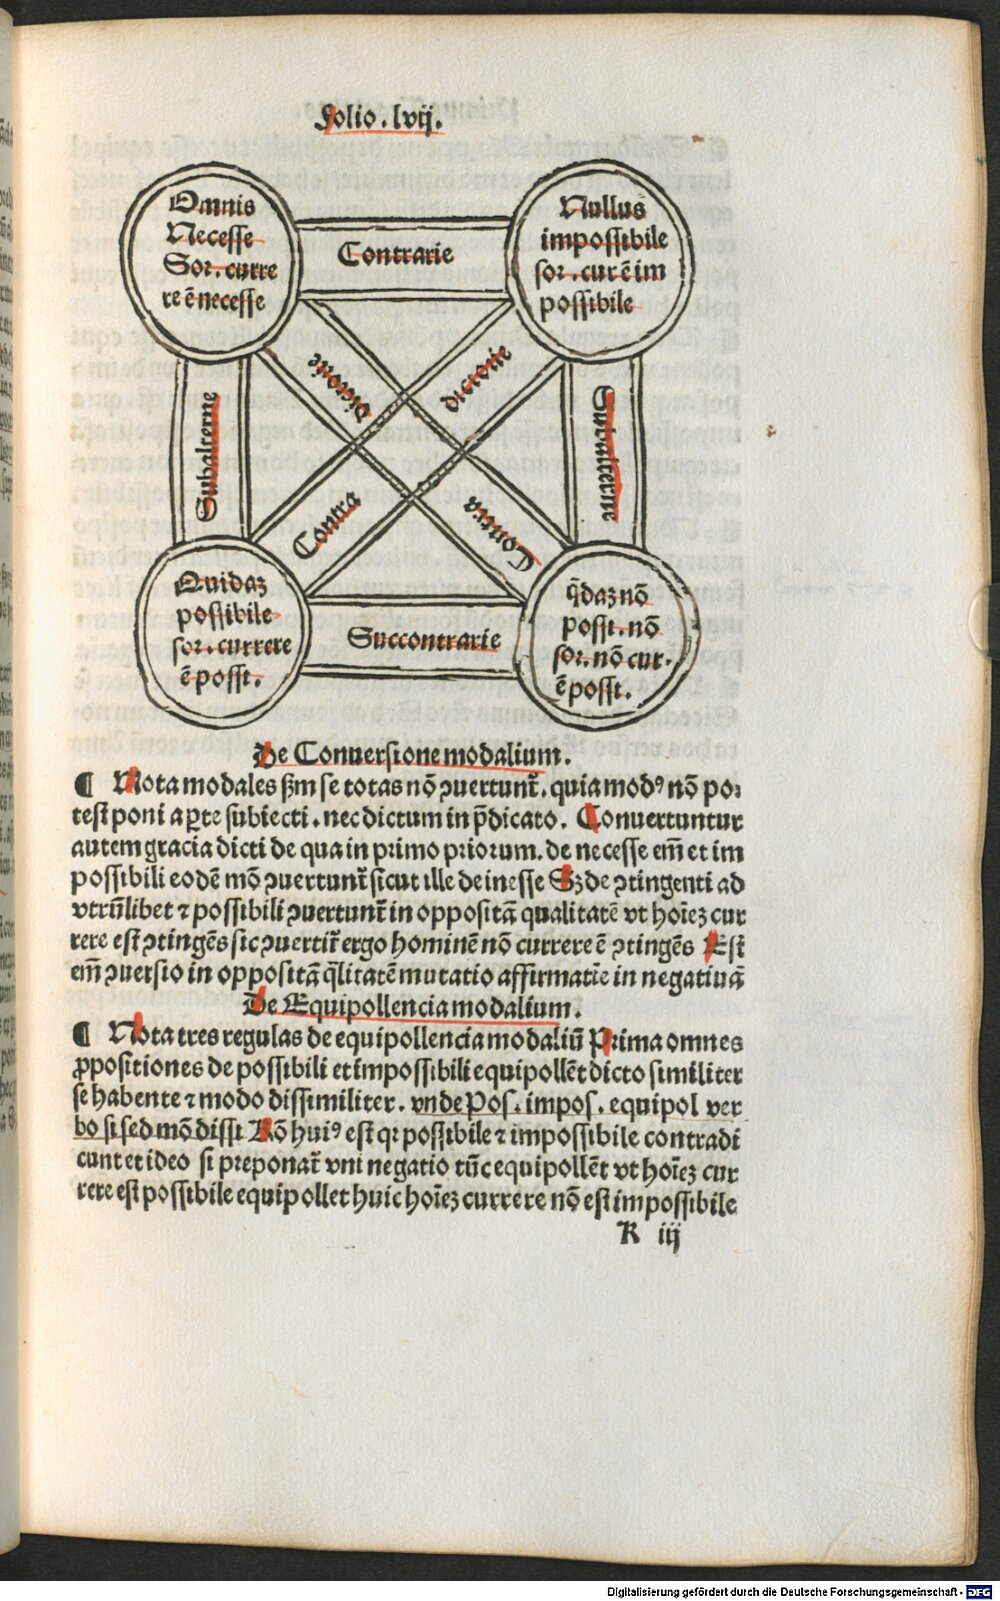 Folio. lvij.
Omnis
Necesse
Sor. curre
re ē necesse
Contrarie
Nullus
impossibile
sor. cur ē im
possibile
dictorie
dictorie
Subalterne
Subalterne
Contra
Contra
Quidaꝫ
possibile
sor. currere
ē possi.
Succontrarie
q̄daꝫ nō
possi. nō
sor. nō cur.
ē possi.
De Conuersione modalium.
¶ Nota modales ẜm se totas nō ꝯuertunt᷑. quia modꝰ nō po⸗
test poni a ꝑte subiecti. nec dictum in p̄dicato. Conuertuntur
autem gracia dicti de qua in primo priorum. de necesse em̄ et im
possibili eodē mō ꝯuertunt᷑ sicut ille de inesse Sꝫ de ꝯtingenti ad
vtrūlibet ⁊ possibili ꝯuertunt᷑ in oppositā qualitatē vt hoīeꝫ cur
rere est ꝯtingēs sic ꝯuertit᷑ ergo hominē nō currere ē ꝯtingēs Est
em̄ ꝯuersio in oppositā q̄litatē mutatio affirmatīe in negatiuā
De Equipollencia modalium.
¶ Nota tres regulas de equipollencia modaliū Prima omnes
ꝓpositiones de possibili et impossibili equipollēt dicto similiter
se habente ⁊ modo dissimiliter. vnde Pos. impos. equipol ver
bo si sed mō dissi Rō huiꝰ est qꝛ possibile ⁊ impossibile contradi
cunt et ideo si preponat᷑ vni negatio tūc equipollēt vt hoīeꝫ cur
rere est possibile equipollet huic hoīeꝫ currere nō est impossibile
K iij
Digitalisierung gefördert durch die Deutsche Forschungsgemeinschaft - DFG